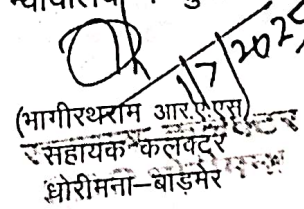 1/7/2025
(भागीरथराम आर.ए.एस)
सहायक कलक्टर
धोरीमना–बाड़मेर